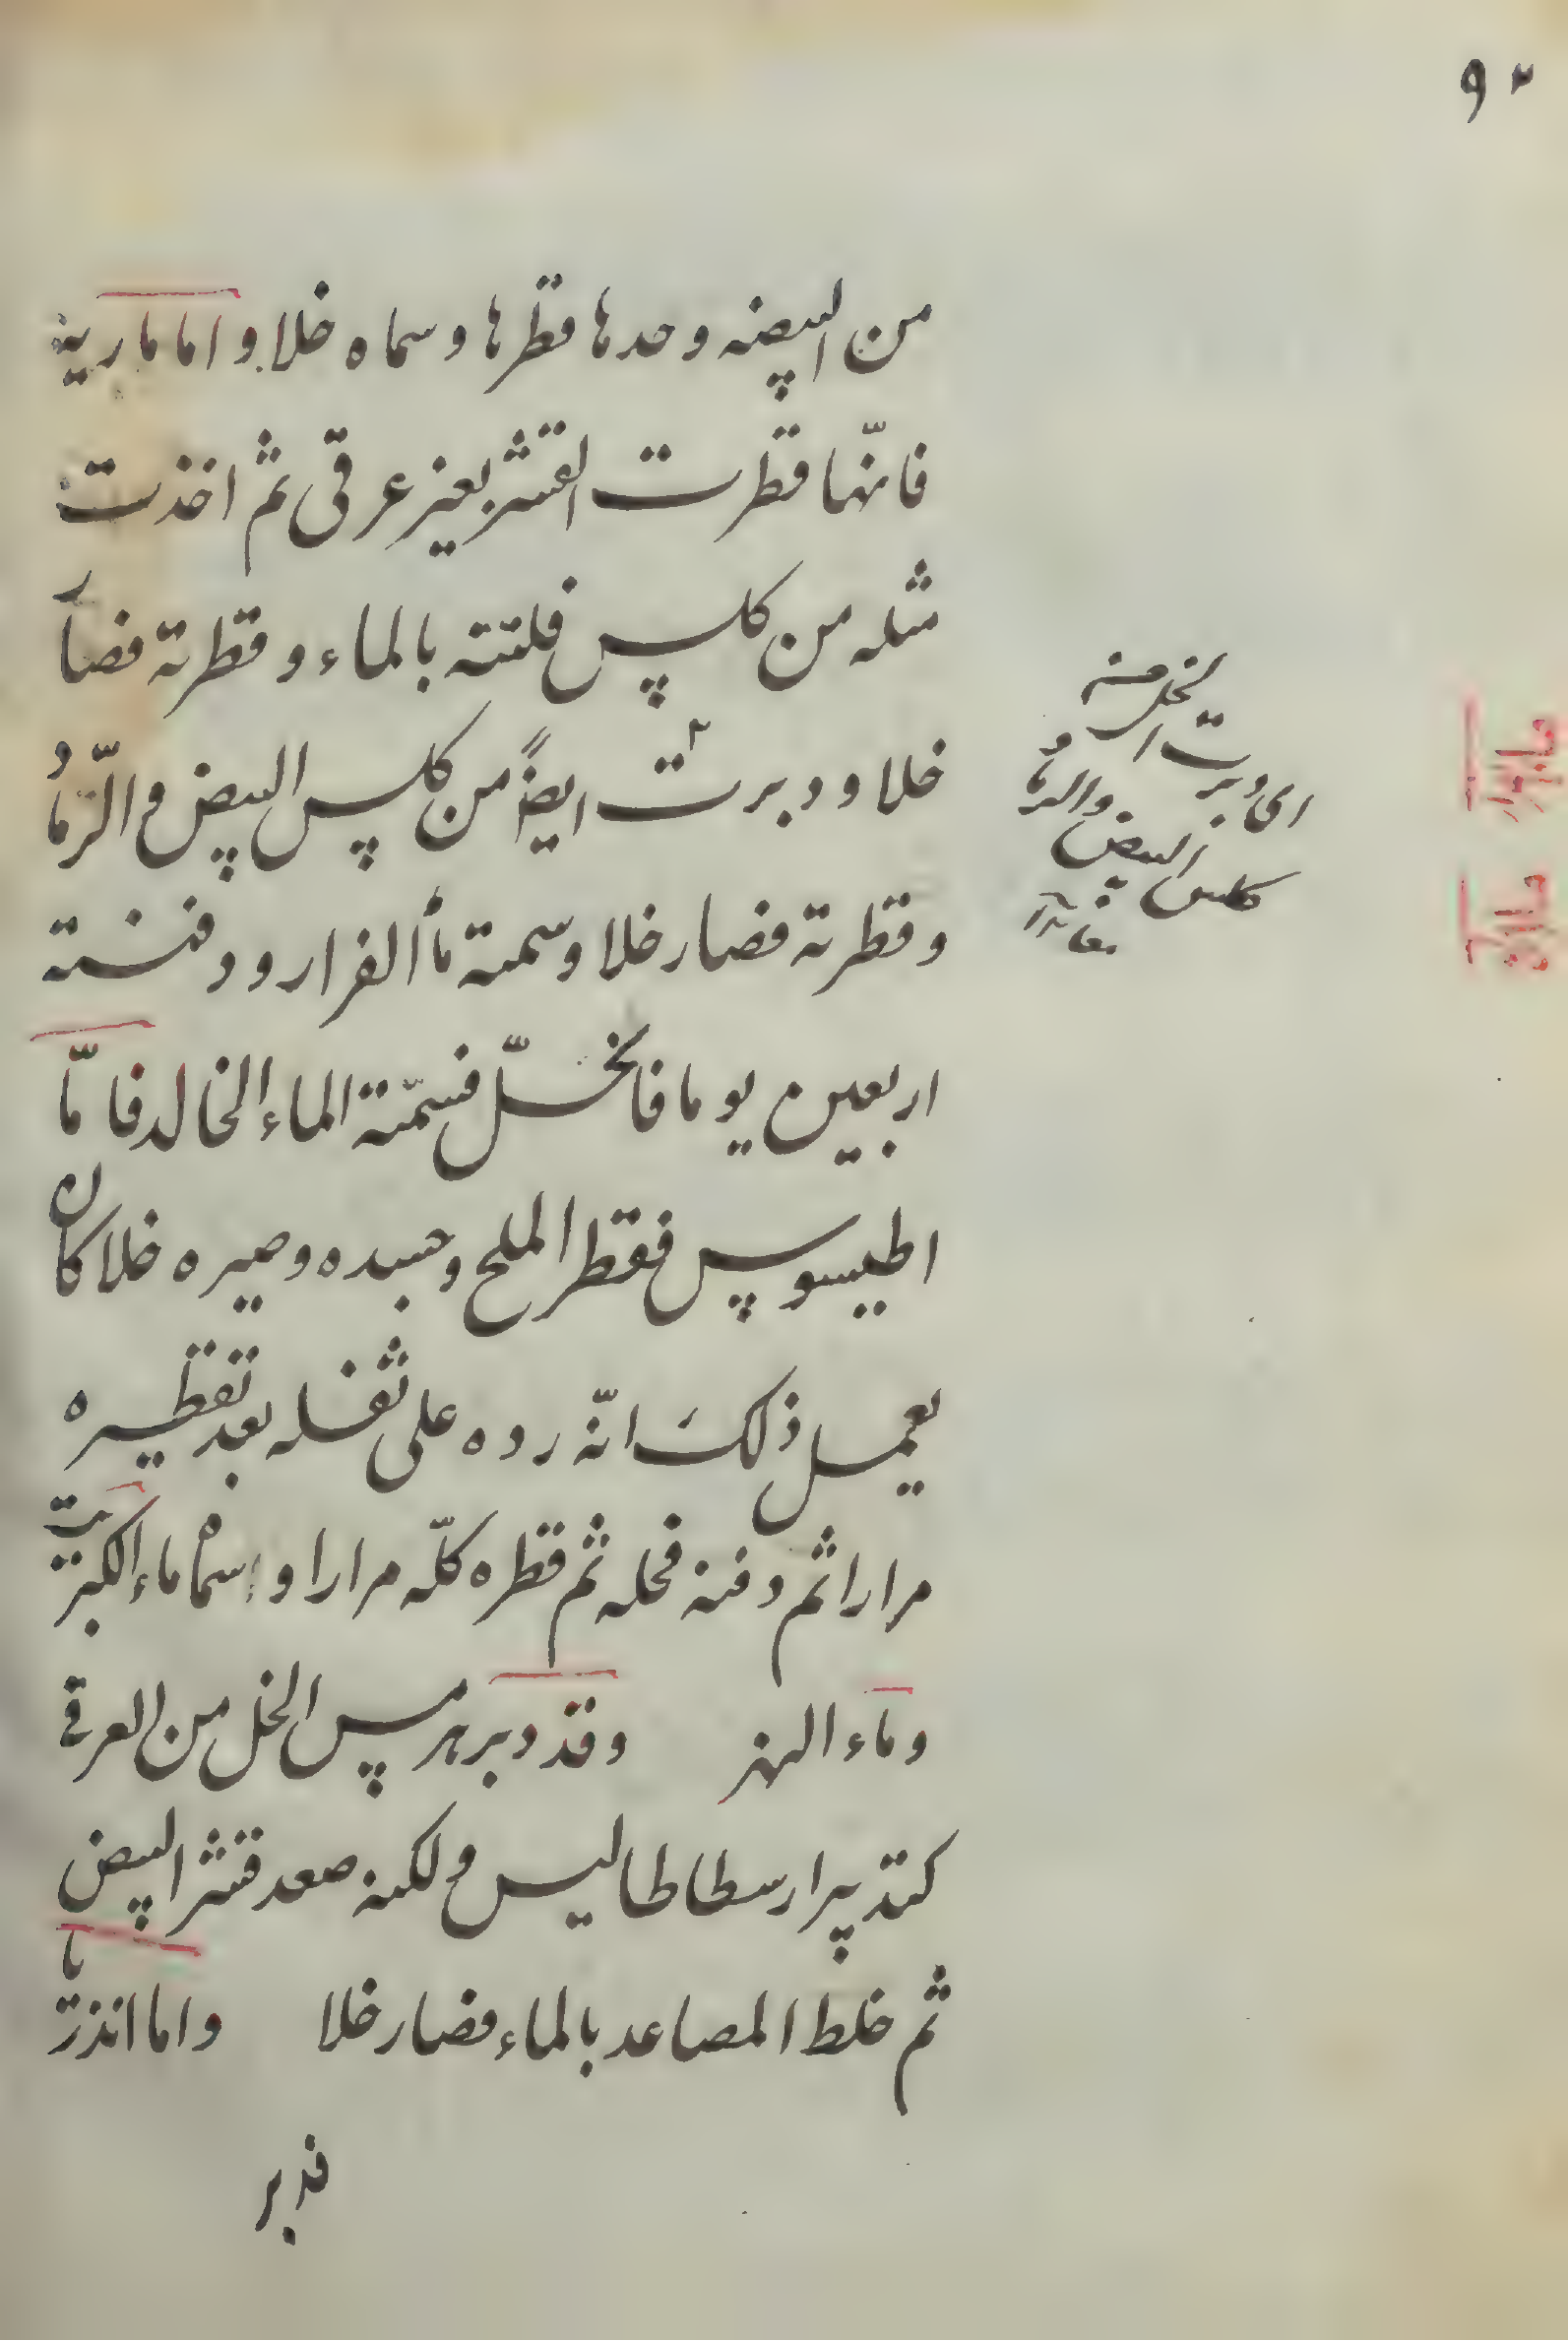 ٩٢
من البيضه وحدها قطرها وسماه خلا واما مارية
فانّها قطرت القشر بغير عرقى ثم اخذت
مثله من كلس فلتته بالماء وقطرته فصار
خلا ودبرت ايضًا من كلس البيض والرّمادُ
وقطرته فصار خلا وسمته مأ الفرار ودفنته
اربعين يوما فانحلّ فسمّته الماء الخالد فامّا
اطيسوس فقطر الملح وجسده وصيره خلا كان
يعمل ذلكَ انّه رده على ثفله بعد تقطيره
مرارا ثم دفنه فحله ثم قطره كلّه مرارا واسماه ماء الكبريت
وماء النهر وقد دبر هرمس الخل من العرقى
كتدبير ارسطاطاليس ولكنه صعد قشر البيض
ثم خلط المصاعد بالماء فصار خلا واما اندريا
فدبر
اى دبرت الخل منه
كلس البيض والرماد